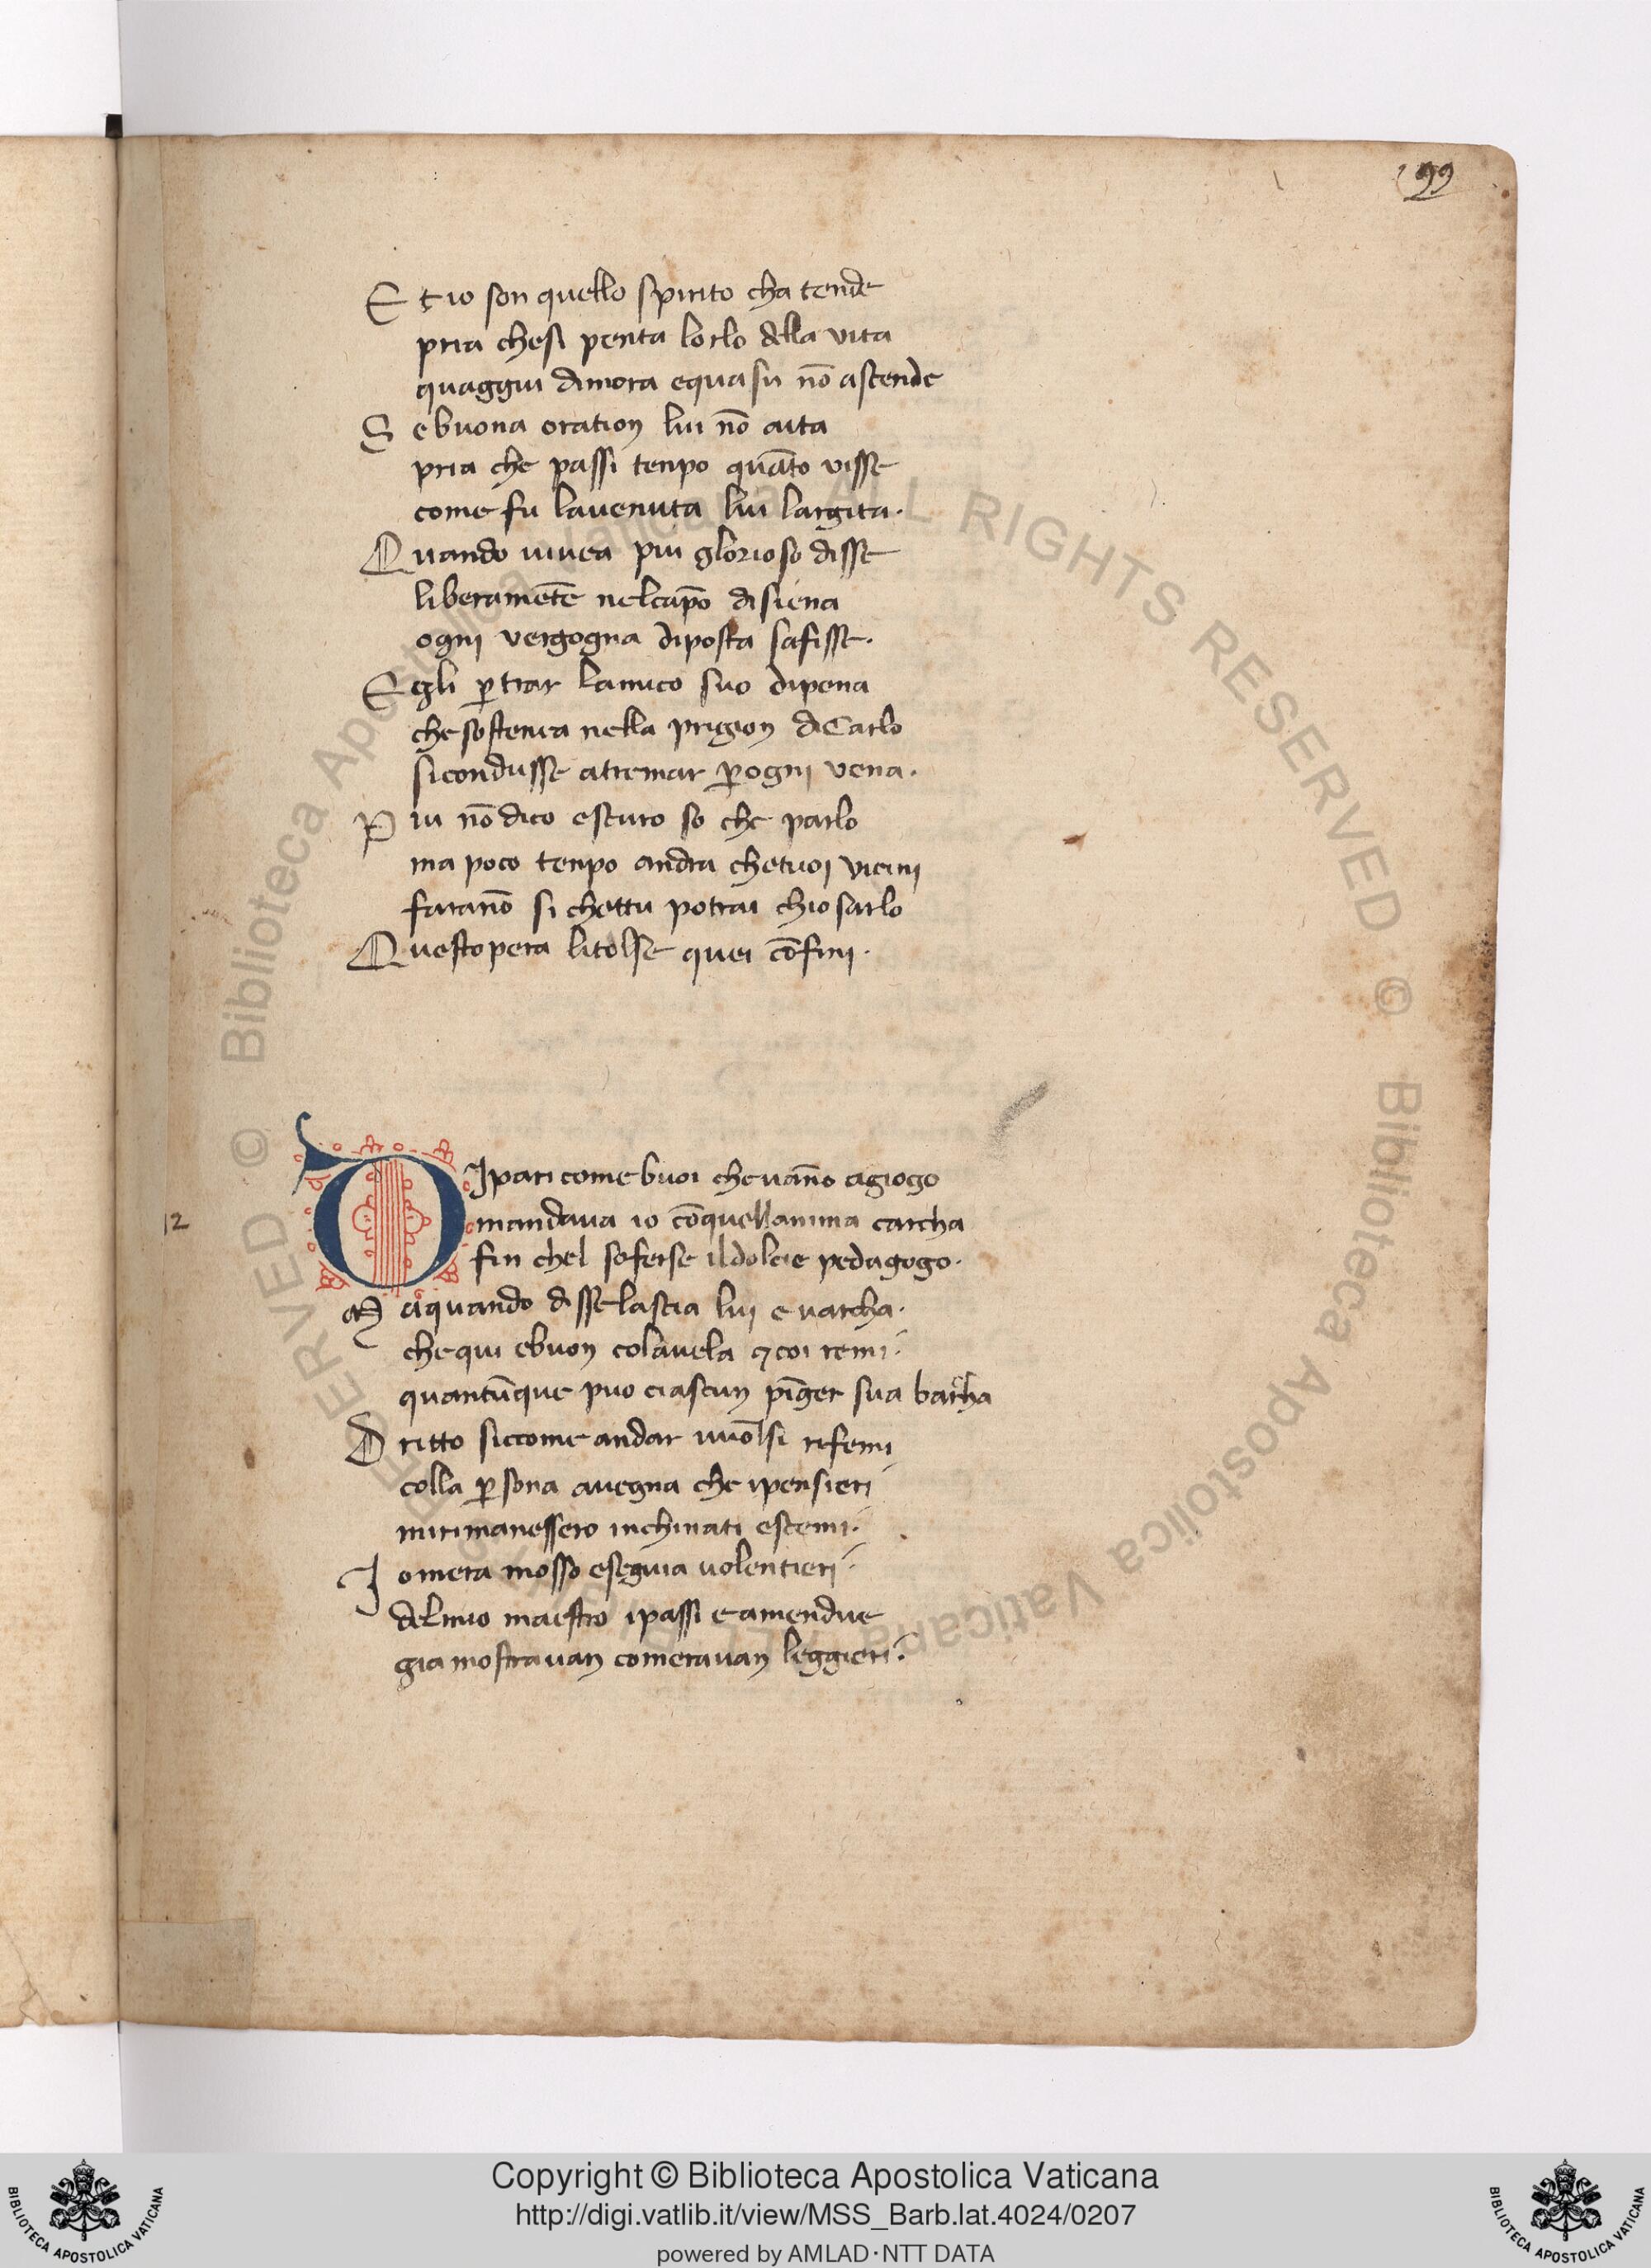 99
E t io son quello spirito cha tende
pria chesi penta lorlo della vita
quaggiu dimora equasu nō ascende
S ebuona oration lui nō aita
pria che passi tenpo quāto visse
come fu lavenuta lui largita.
Quando uiuea piu glorioso disse
liberamēte nelcāpo disiena
ogni vergogna diposta safisse.
Egli ꝑ trar lamico suo dipena
che sostenea nella prigion diCarlo
sicondusse atremar ꝑogni vena.
P iu nō dico escuro so che parlo
ma poco tenpo andra chetuoi vicini
farānō si chettu potrai chiosarlo
Questopera litolse quei cōfini.
D Ipari come buoi chevāno agiogo
12
mandava io cōquellanima carcha
fin chel soferse ildolcie pedagogo.
M a quando disse lascia lui e varcha.
chequi ebuon colauela ⁊ coi remi.
quantūque puo ciascun pīger sua barcha
D ritto siccome andar vuolsi rifemi
colla ꝑsona avegna che ipensieri
mirimanessero inchinati escemi.
I omera mosso eseguia uolentieri.
delmio maestro ipassi eamendue
gia mostrauan comerauan leggieri.
© Biblioteca Apostolica Vaticana ALL RIGHTS RESERVED © Biblioteca Apostolica Vaticana ALL RIGHTS RESERVED
Copyright © Biblioteca Apostolica Vaticana
http://digi.vatlib.it/view/MSS_Barb.lat.4024/0207
powered by AMLAD·NTT DATA
BIBLIOTECA APOSTOLICA VATICANA
BIBLIOTECA APOSTOLICA VATICANA